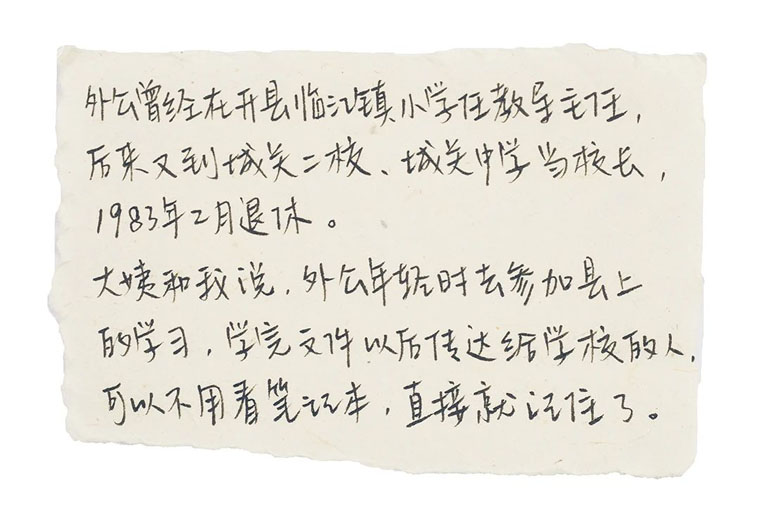 外公曾经在开县临江镇小学任教导主任，
后来又到城关二校、城关中学当校长，
1983年2月退休。
大姨和我说，外公年轻时去参加县上
的学习，学完文件以后传达给学校的人，
可以不用看笔记本，直接就记住了。